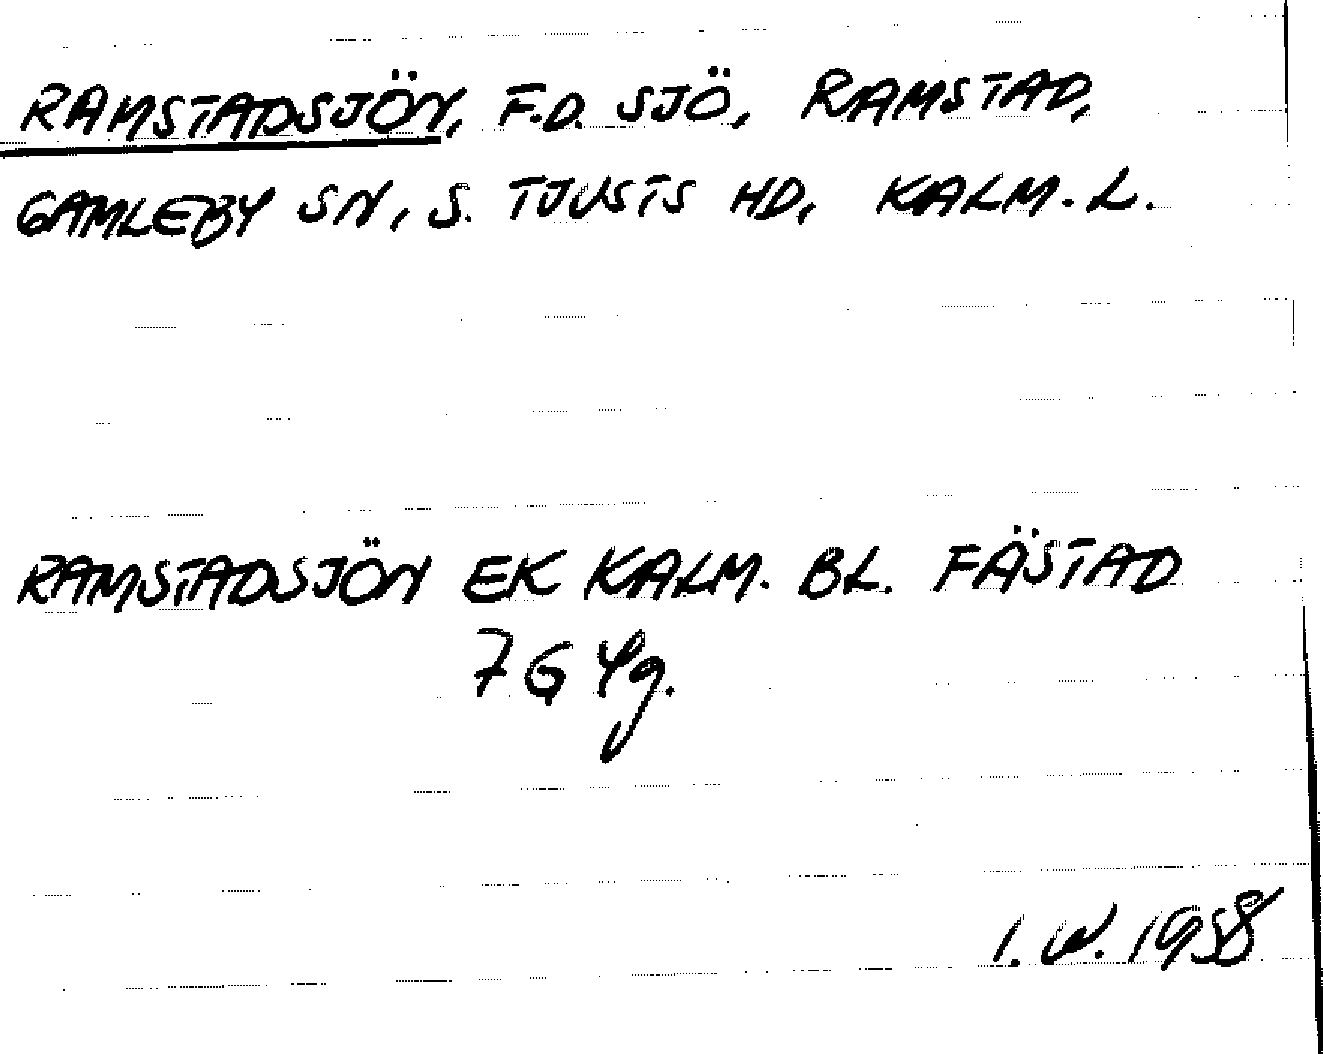 RAMSTADSJÖN, F.D. SJÖ, RAMSTAD,
GAMLEBY SN, S. TJUSTS HD, KALM. L.
RAMSTADSJÖN EK KALM. BL. FÅSTAD
7G 4g.
I. W. 1958